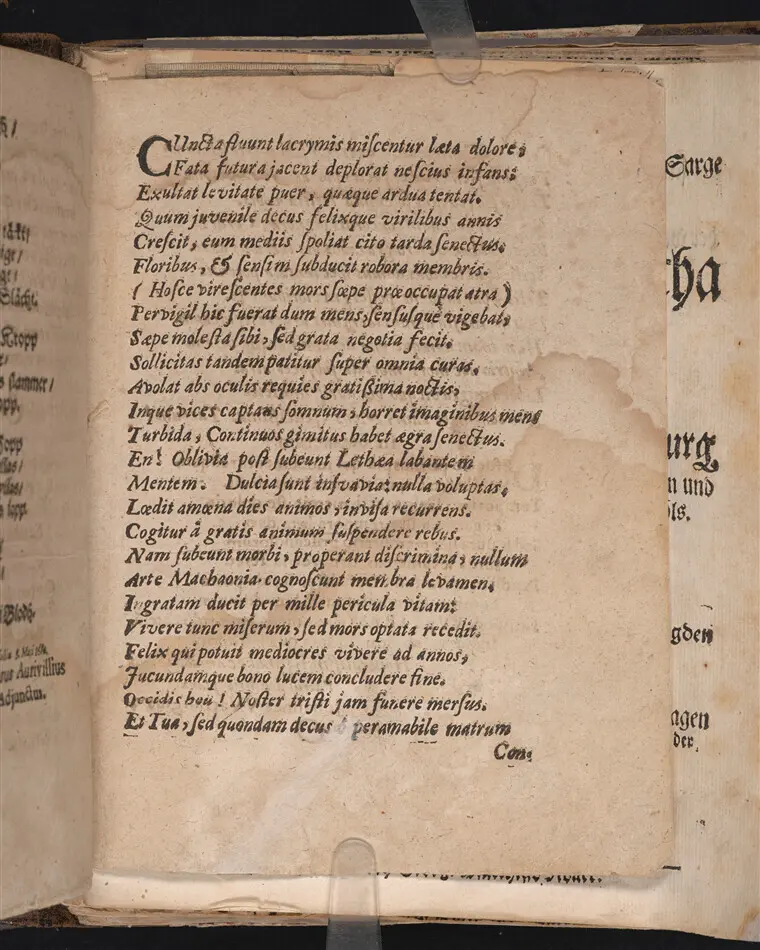 ß/
täkt/
ige/
ge/
Slächt.
Kropp
stammer/
opp.
kopp
illas/
topp.
Blodh-
rus Aurivillius
Adjunctus.
CUncta fluunt lacrymis miscentur læta dolore;
Fata futura jacent deplorat nescius infans;
Exultat levitate puer, quæque ardua tentat.
Quum juvenile decus felixque virilibus annis
Crescit, eum mediis spoliat cito tarda senectus.
Floribus, & sensim subducit robora membris.
( Hosce virescentes mors sæpe præoccupat atra )
Pervigil hic fuerat dum mens, sensusquè vigebat,
Sæpe molesta sibi, sed grata negotia fecit.
Sollicitas tandem patitur super omnia curas.
Avolat abs oculis requies gratissima noctis,
Inque vices captans somnum, horret imaginibus mens
Turbida, Continuos gimitus habet ægra senectus.
En! Oblivia post subeunt Lethæa labantem
Mentem. Dulcia sunt insvavia: nulla voluptas.
Lædit amœna dies animos, invisa recurrens.
Cogitur â gratis animum suspendere rebus.
Nam subeunt morbi, properant discrimina, nullum
Arte Machaonia cognoscunt membra levamen.
Ingratam ducit per mille pericula vitam:
Vivere tunc miserum, sed mors optata recedit.
Felix qui potuit mediocres vivere ad annos,
Jucundamque bono lucem concludere fine.
Occidis heu! Noster tristi jam funere mersus.
Et Tua, sed quondam decus ô peramabile matrum
Con-
Sarge
ha
urg
n und
ols.
gden
agen
der.